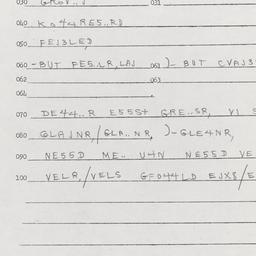 040 K044RES..RD
050 FEJ3LE3
060 -BUT FES.LR,LAJ 061 )- BUT CVAJ3
062 063
064
070 DE44..R E555+ GRE..SR, VI
080 GLAJNR,/GLA..NR, )-GLE4NR,
090 NE55D ME.. U4N NE55D VE
100 VELR,/VELS GF044LD EJX8/E